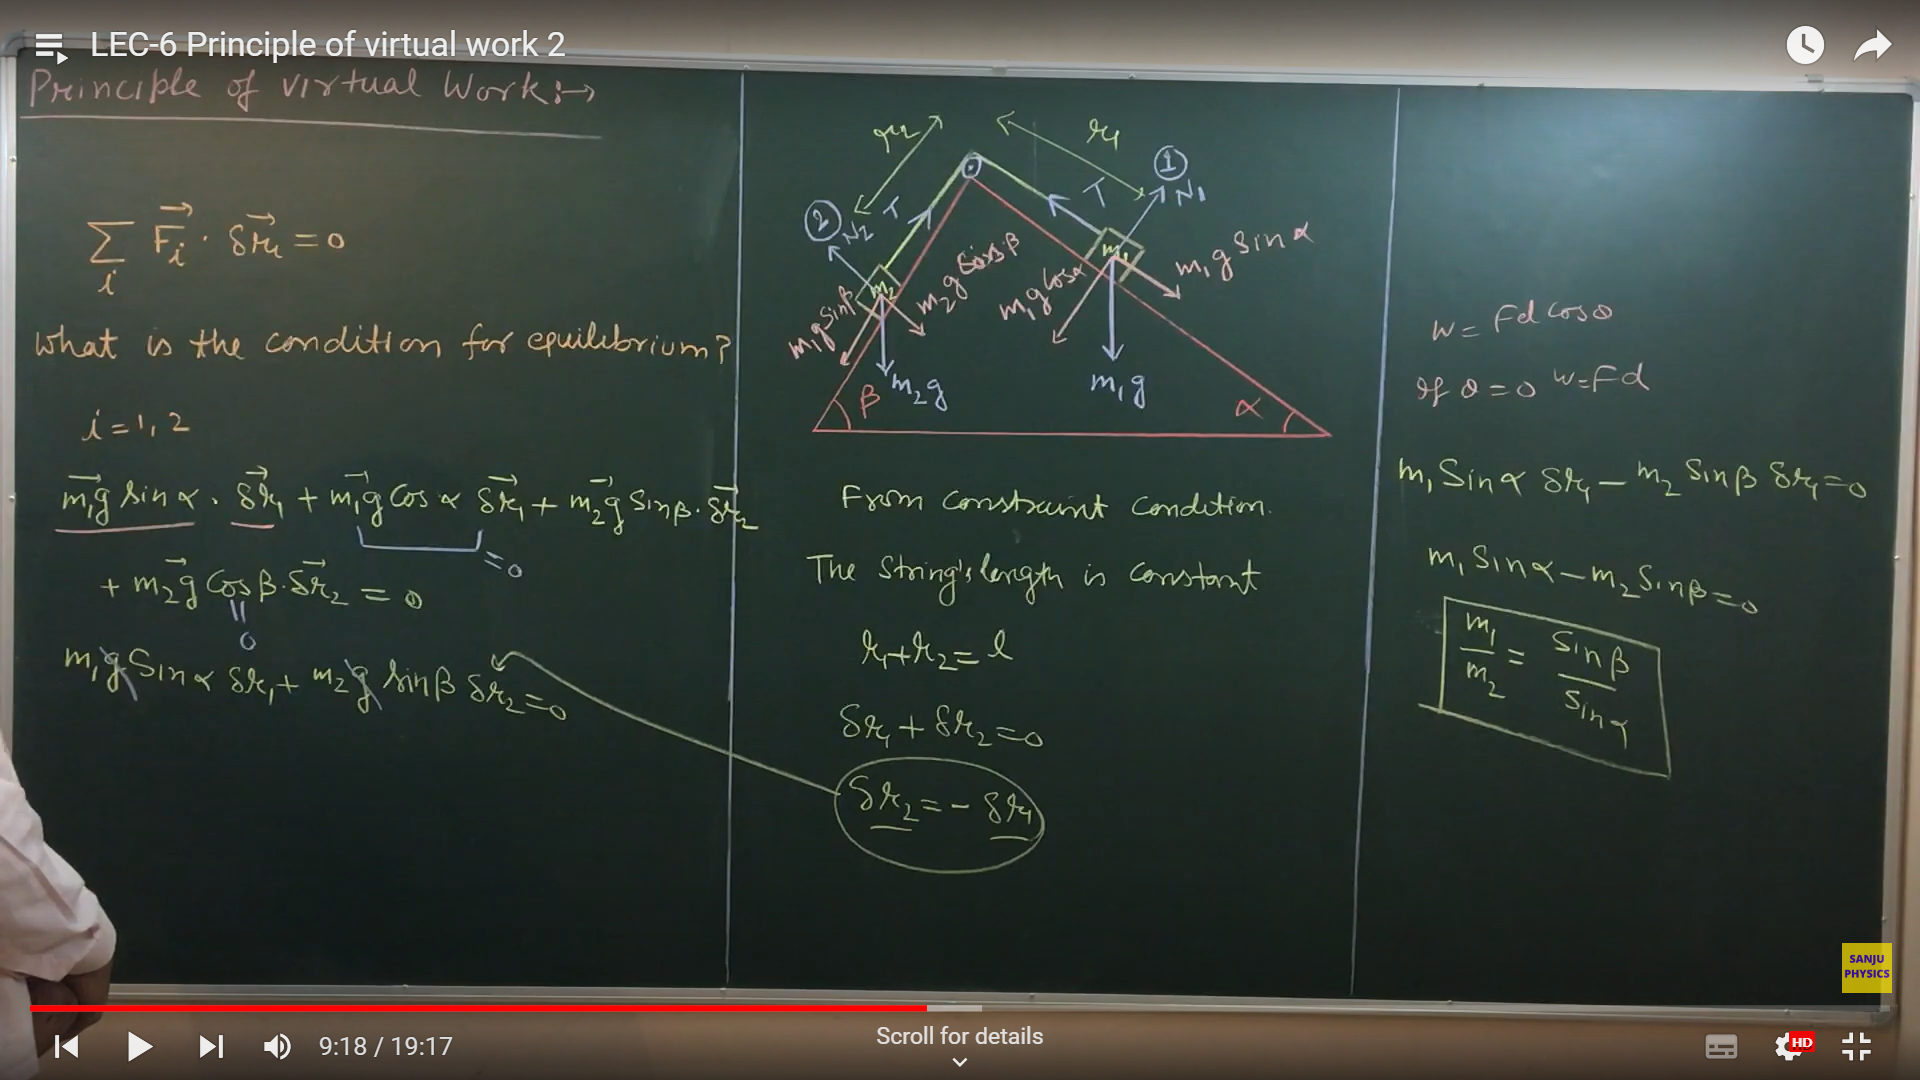 LEC-6 Principle of virtual work 2
Principle of virtual Work:→
∑ᵢ F⃗ᵢ · δr⃗ᵢ = 0
What is the condition for equilibrium?
i = 1, 2
m₁g⃗ sin α · δr⃗₁ + m₁g⃗ cos α δr⃗₁ + m₂g⃗ sin β · δr⃗₂
= 0
+ m₂g⃗ cos β · δr⃗₂ = 0
0
m₁g Sin α δr₁ + m₂g sin β δr₂ = 0
r₂
r₁
①
②
N₁
N₂
T
T
m₁
m₂
m₁g Sin α
m₁g cos α
m₂g β
m₁g Sin β
m₂g
m₁g
β
α
From constraint condition.
The String's length is constant
r₁ + r₂ = l
δr₁ + δr₂ = 0
δr₂ = - δr₁
W = Fd cos θ
If θ = 0 W = Fd
m₁ Sin α δr₁ – m₂ Sin β δr₁ = 0
m₁ Sin α – m₂ Sin β = 0
m₁/m₂ = Sin β/Sin α
SANJU
PHYSICS
9:18 / 19:17
Scroll for details
HD